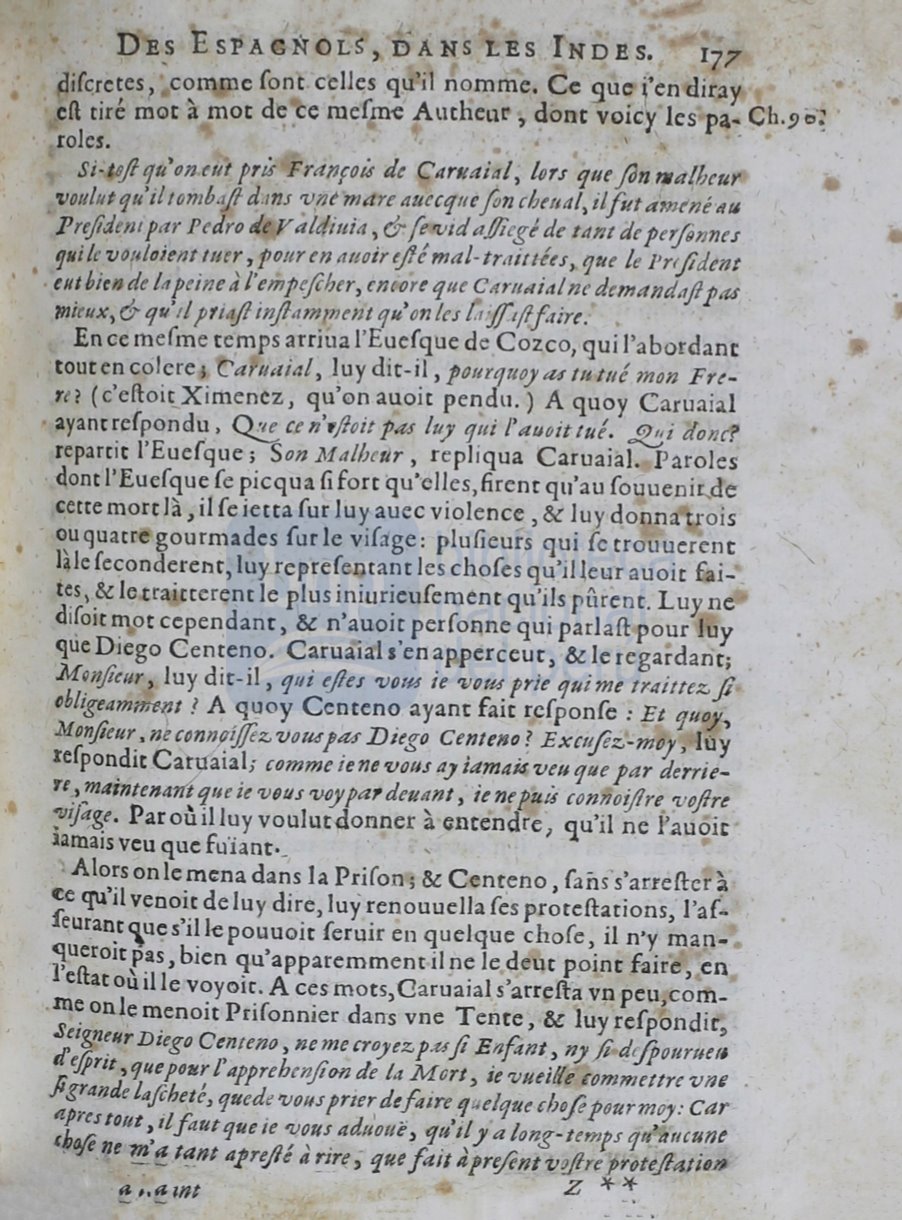 DES ESPAGNOLS, DANS LES INDES. 177
diſcretes, comme ſont celles qu'il nomme. Ce que i'en diray
eſt tiré mot à mot de ce meſme Autheur, dont voicy les pa- Ch. 90.
roles.
Si-toſt qu'on eut pris François de Caruaial, lors que ſon malheur
voulut qu'il tombaſt dans vne mare auecque ſon cheual, il fut amené au
Preſident par Pedro de Valdiuia, & ſe vid aſſiegé de tant de perſonnes
qui le vouloient tuer, pour en auoir eſté mal-traittées, que le Preſident
eut bien de la peine à l'empeſcher, encore que Caruaial ne demandaſt pas
mieux, & qu'il priaſt inſtamment qu'on les laiſſaſt faire.
En ce meſme temps arriua l'Eueſque de Cozco, qui l'abordant
tout en colere; Caruaial, luy dit-il, pourquoy as tu tué mon Fre-
re? (c'eſtoit Ximenez, qu'on auoit pendu.) A quoy Caruaial
ayant reſpondu, Que ce n'eſtoit pas luy qui l'auoit tué. Qui donc?
repartit l'Eueſque; Son Malheur, repliqua Caruaial. Paroles
dont l'Eueſque ſe picqua ſi fort qu'elles, firent qu'au ſouuenir de
cette mort là, il ſe ietta ſur luy auec violence, & luy donna trois
ou quatre gourmades ſur le viſage: pluſieurs qui ſe trouuerent
là le ſeconderent, luy repreſentant les choſes qu'il leur auoit fai-
tes, & le traitterent le plus iniurieuſement qu'ils pûrent. Luy ne
diſoit mot cependant, & n'auoit perſonne qui parlaſt pour luy
que Diego Centeno. Caruaial s'en apperceut, & le regardant;
Monſieur, luy dit-il, qui eſtes vous ie vous prie qui me traittez ſi
obligeamment? A quoy Centeno ayant fait reſponſe: Et quoy,
Monſieur, ne connoiſſez vous pas Diego Centeno? Excuſez-moy, luy
reſpondit Caruaial; comme ie ne vous ay iamais veu que par derrie-
re, maintenant que ie vous voy par deuant, ie ne puis connoiſtre voſtre
viſage. Par où il luy voulut donner à entendre, qu'il ne l'auoit
iamais veu que fuïant.
Alors on le mena dans la Priſon; & Centeno, ſans s'arreſter à
ce qu'il venoit de luy dire, luy renouuella ſes proteſtations, l'aſ-
ſeurant que s'il le pouuoit ſeruir en quelque choſe, il n'y man-
queroit pas, bien qu'apparemment il ne le deut point faire, en
l'eſtat où il le voyoit. A ces mots, Caruaial s'arreſta vn peu, com-
me on le menoit Priſonnier dans vne Tente, & luy reſpondit,
Seigneur Diego Centeno, ne me croyez pas ſi Enfant, ny ſi deſpourueu
d'eſprit, que pour l'apprehenſion de la Mort, ie vueille commettre vne
ſi grande laſcheté, que de vous prier de faire quelque choſe pour moy: Car
apres tout, il faut que ie vous aduouë, qu'il y a long-temps qu'aucune
choſe ne m'a tant apreſté à rire, que fait à preſent voſtre proteſtation
Z **